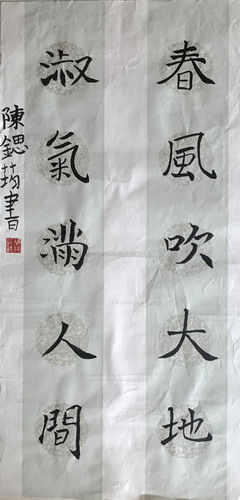 春風吹大地
淑氣滿人間
陳鍶筠書